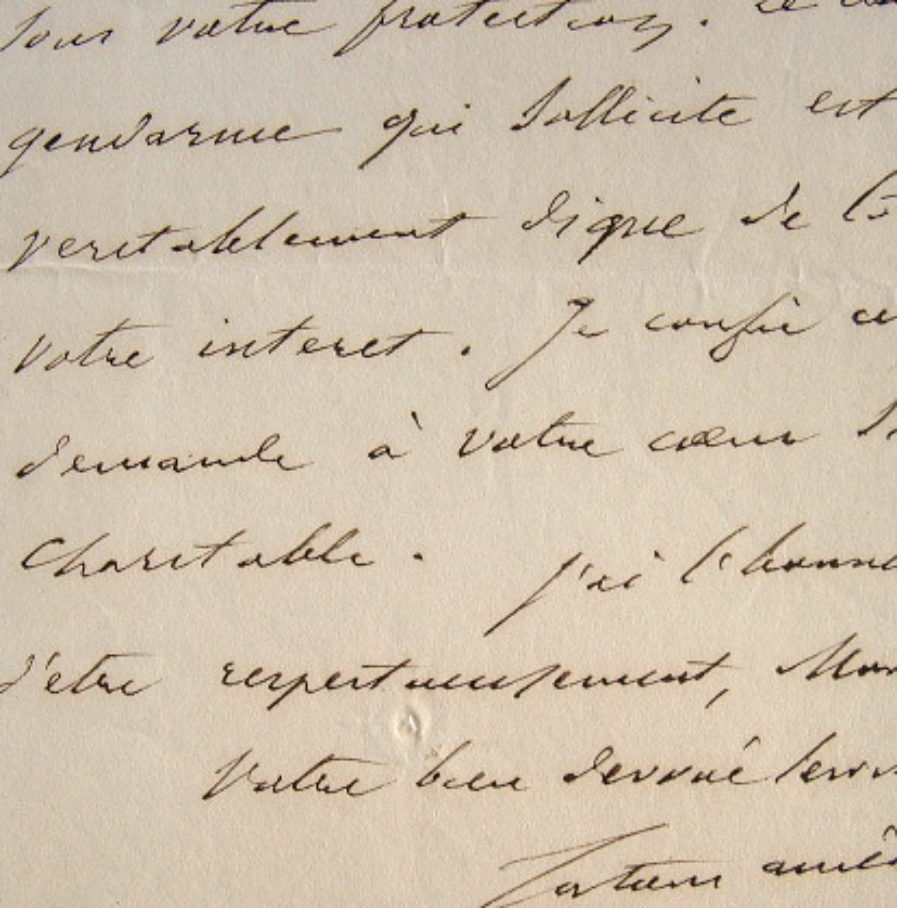 sous votre protection. Le
gendarme qui sollicite est
veritablement digne de
votre interet. Je confie
demande à votre cœur
charitable. J'ai l'honne
d'etre respectueusement, Mon
Votre bien devoué serv